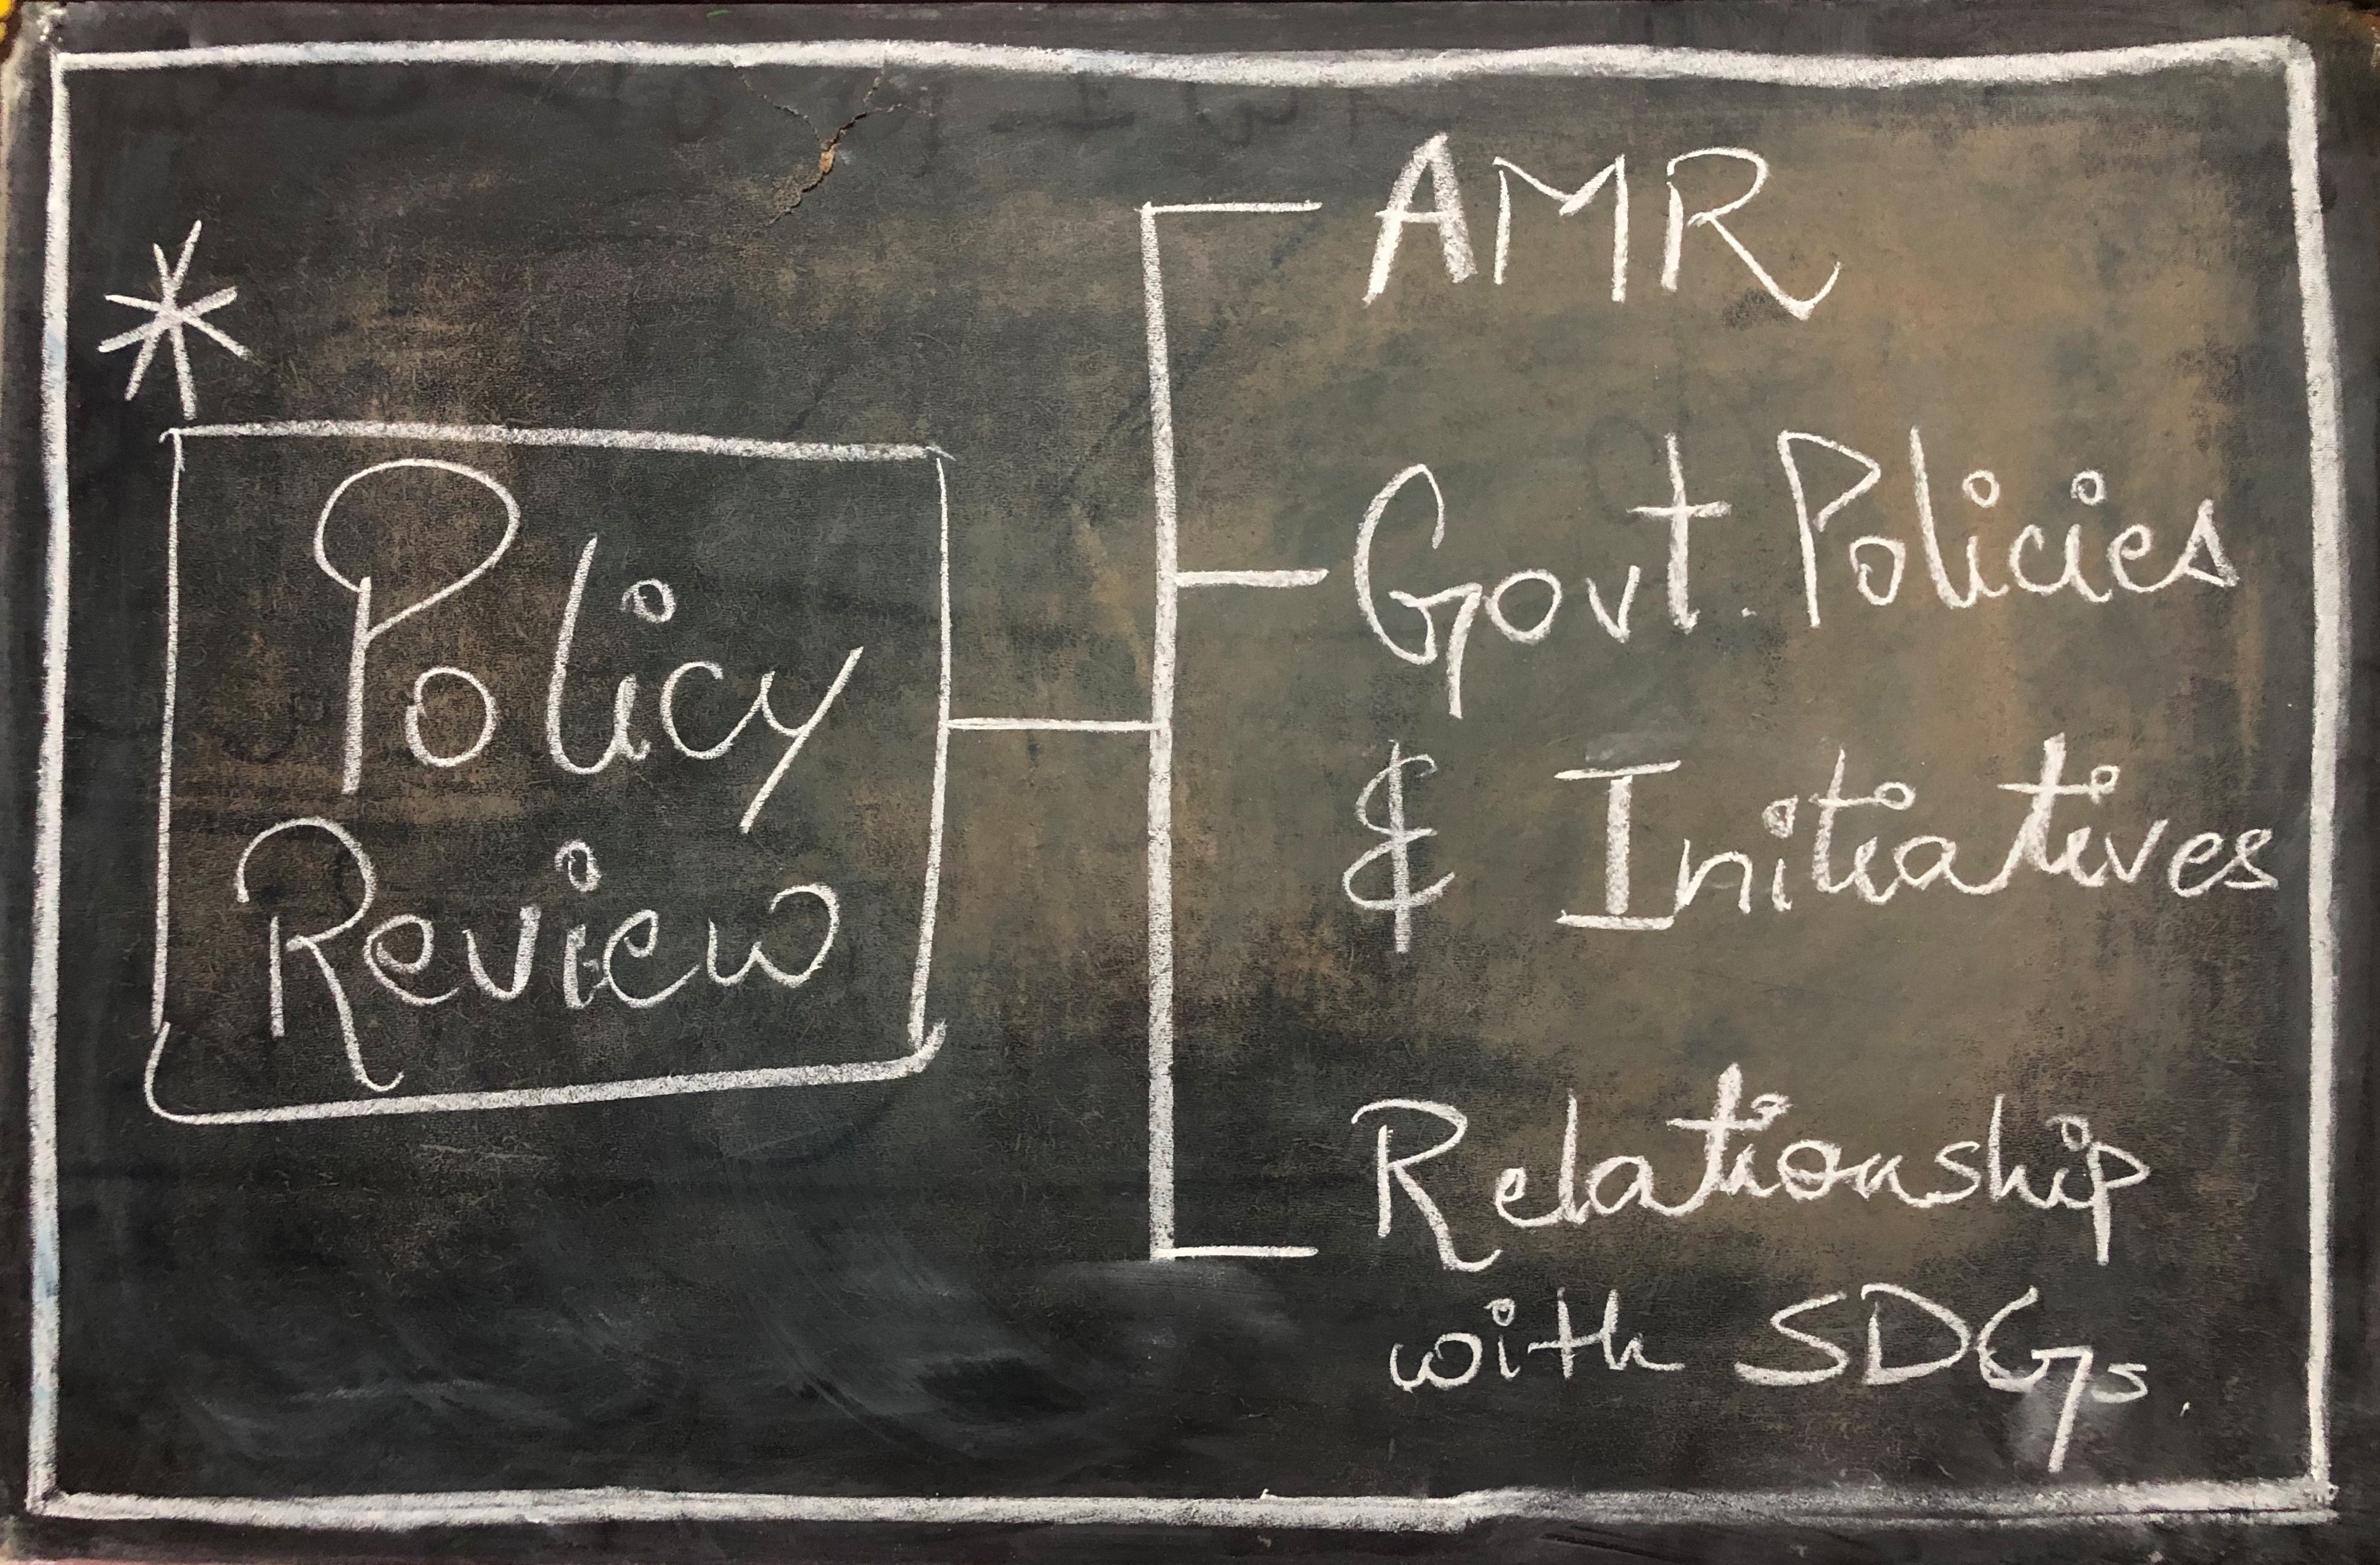 *
Policy
Review
AMR
Govt. Policies
& Initiatives
Relationship
with SDGs.